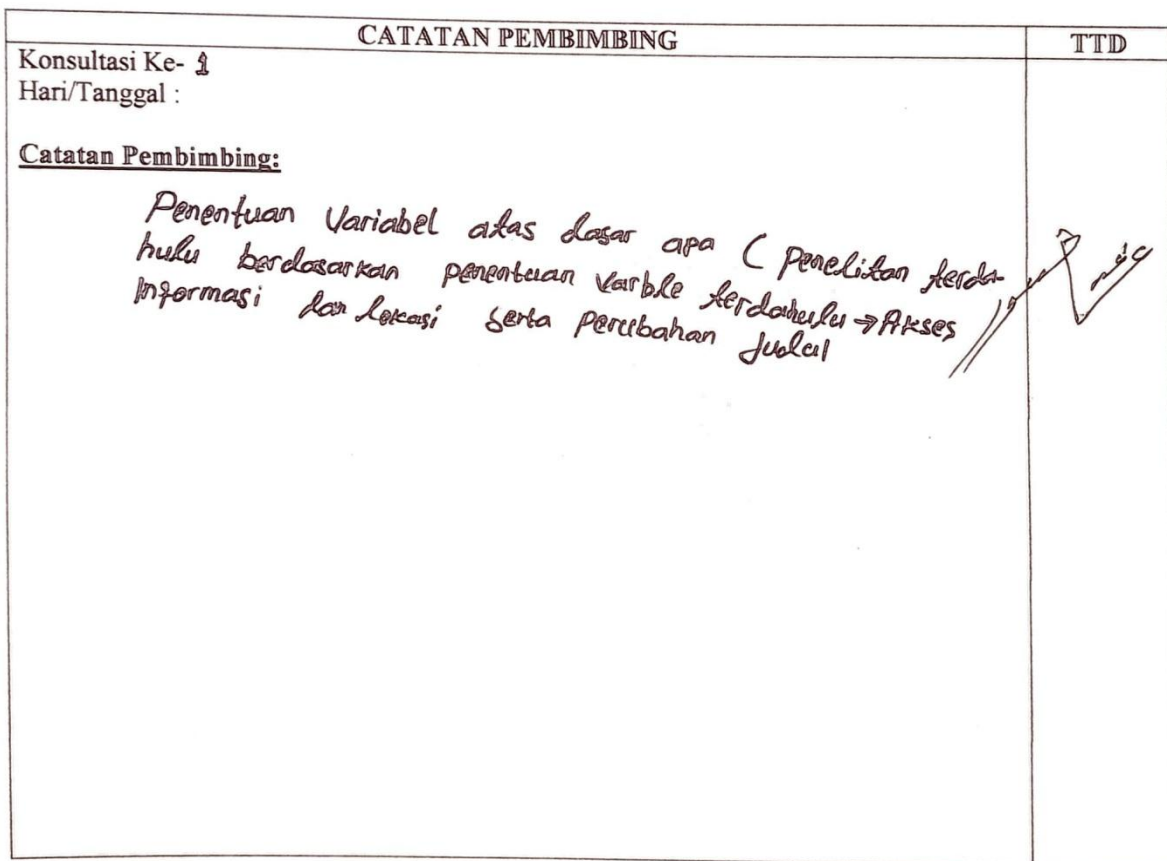 CATATAN PEMBIMBING
TTD
Konsultasi Ke- 1
Hari/Tanggal :
Catatan Pembimbing:
Penentuan Variabel atas dasar apa ( Penelitan terda-
hulu berdasarkan penentuan Varble terdahulu → Akses
Informasi dan Lokasi Serta Perubahan Judul